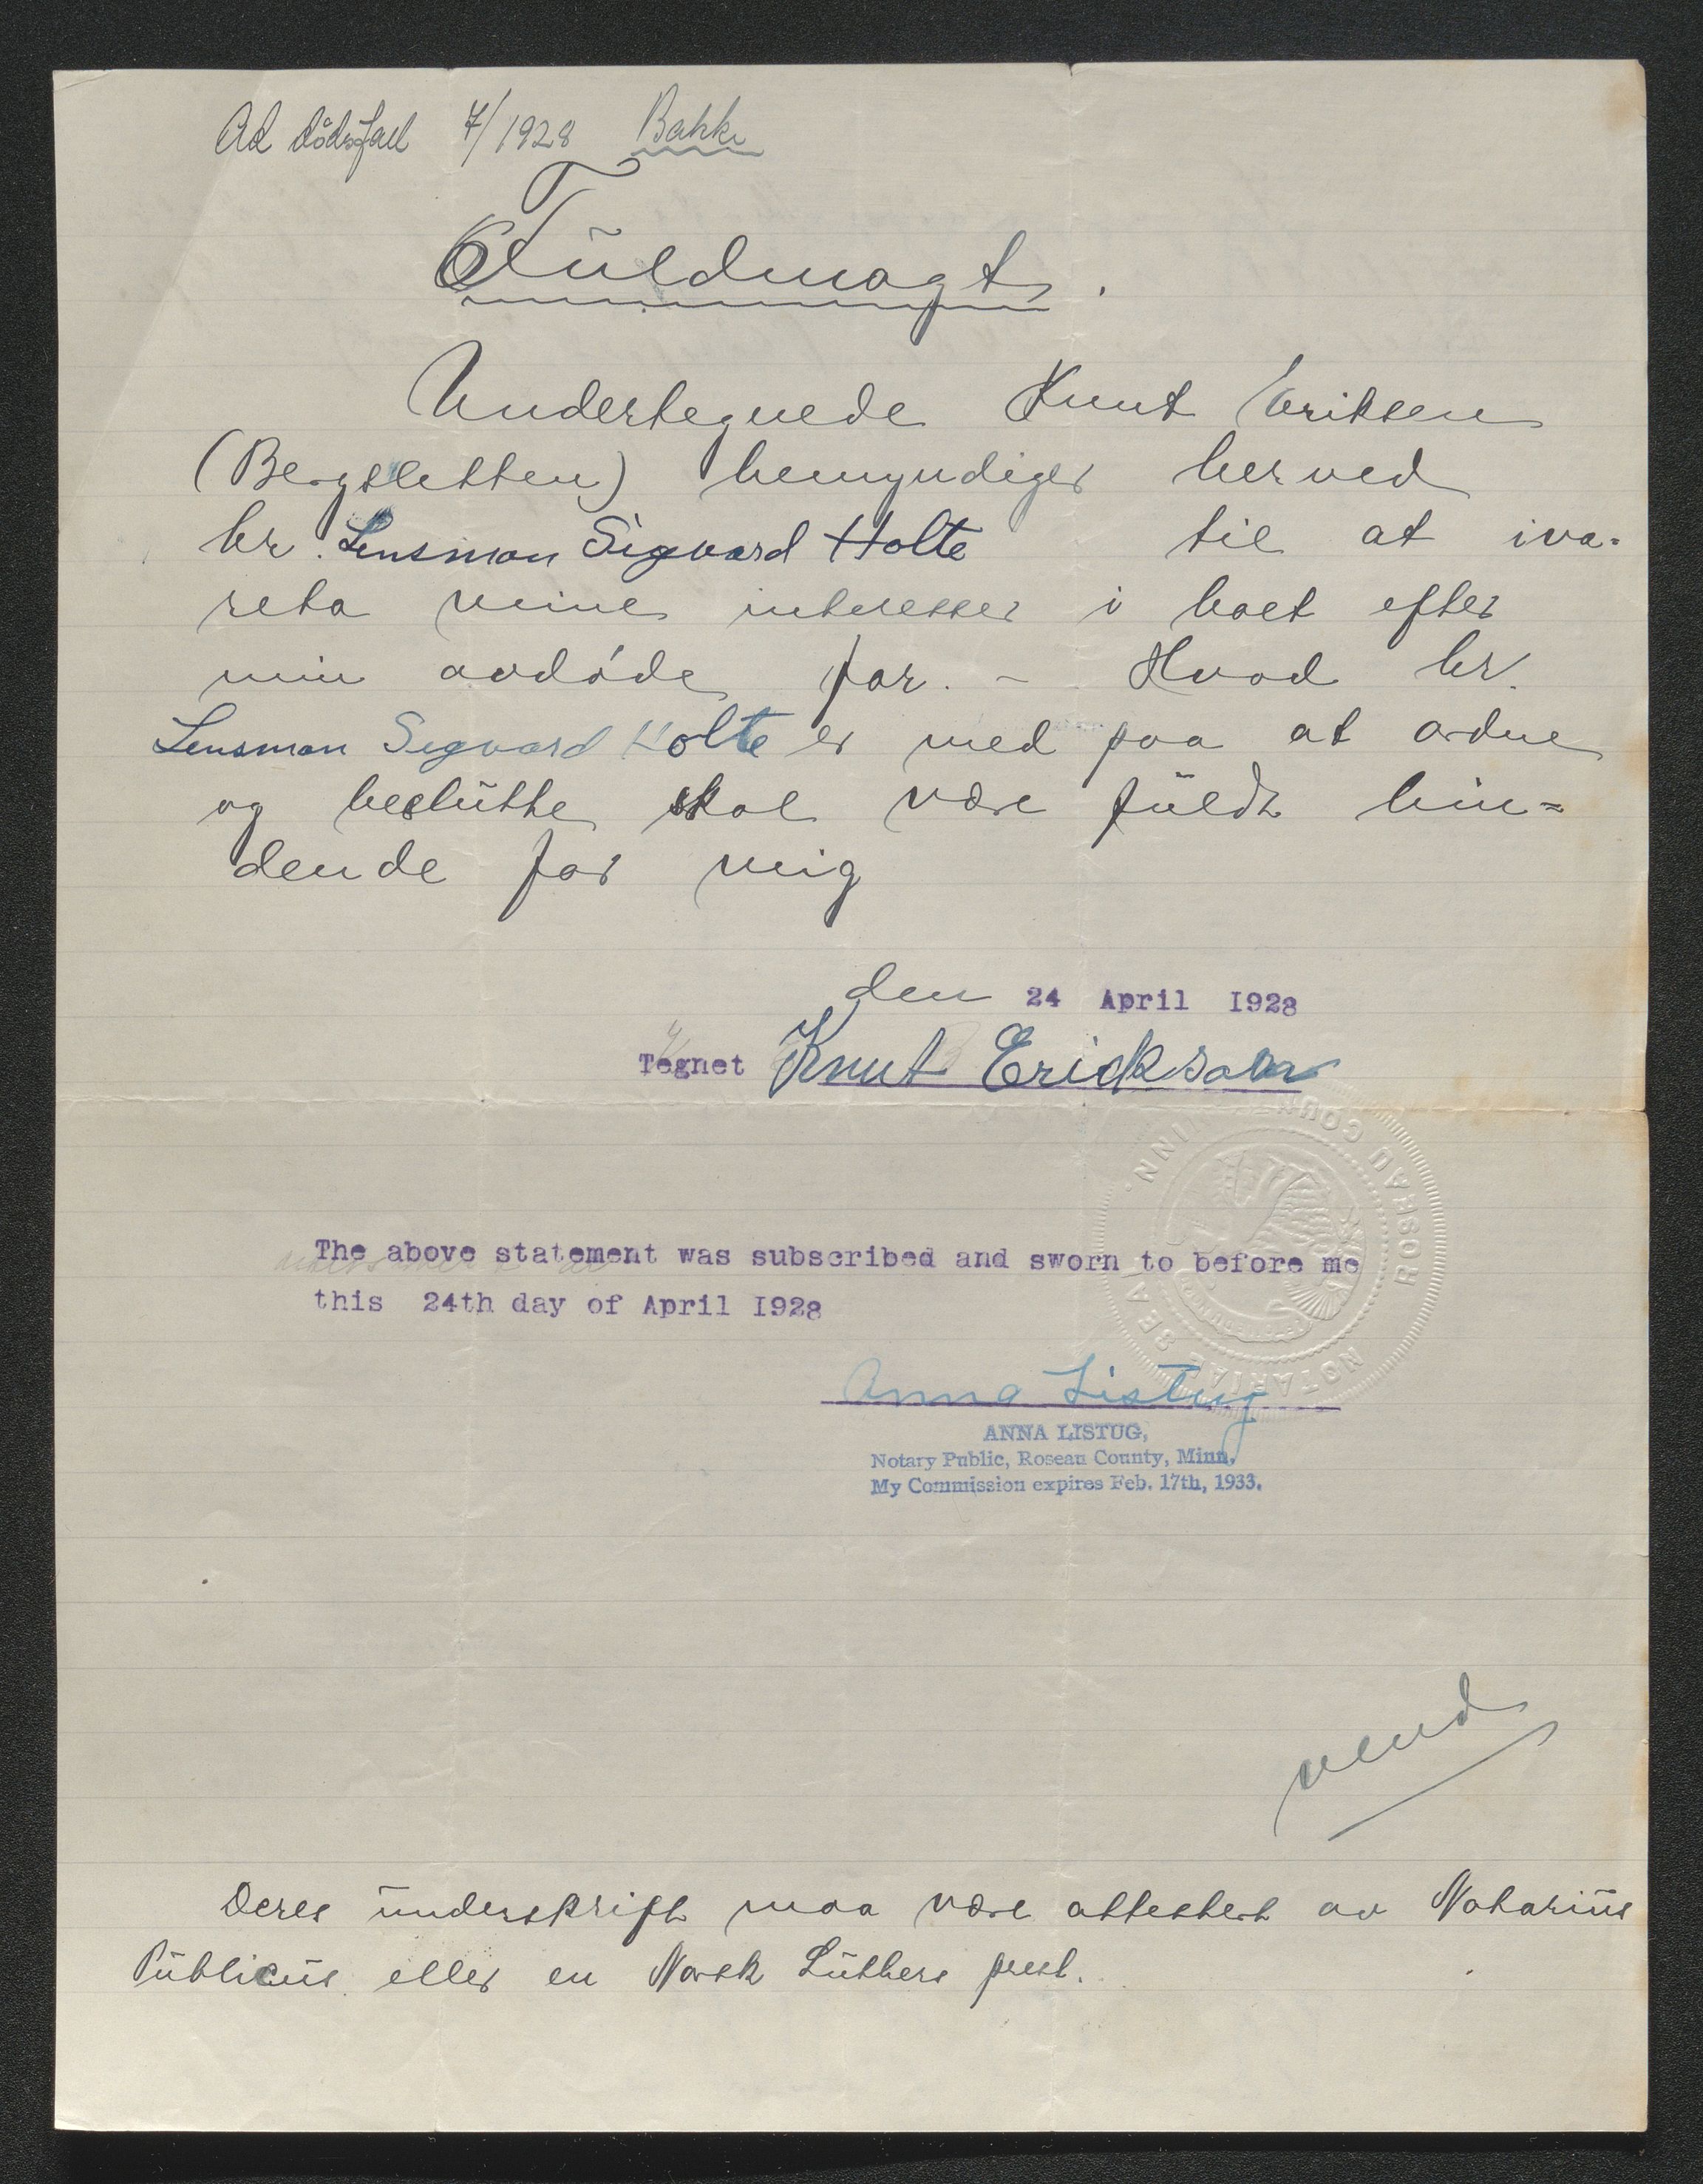 Ad dødsfall 7/1928 Bakke
Fuldmagt.
Undertegnede Knut Eriksen
(Bergsletten) bemyndiger herved
hr. Lensman Sigvard Holte til at iva=
reta mine interesser i boet efter
min avdøde far. - Hvad hr.
Lensman Segvard Holte er med paa at ordne
og beslutte skal være fuldt bin=
dende for mig
den 24 April 1928
Tegnet Knut Erickson
ROSEAU COUNTY MINN.
NOTARIAL SEAL
The above statement was subscribed and sworn to before me
this 24th day of April 1928
Anna Listug
ANNA LISTUG,
Notary Public, Roseau County, Minn.
My Commission expires Feb. 17th, 1933.
vend
Deres underskrift maa være attestert av Notarius
Publicus eller en Norsk Luthers prest.